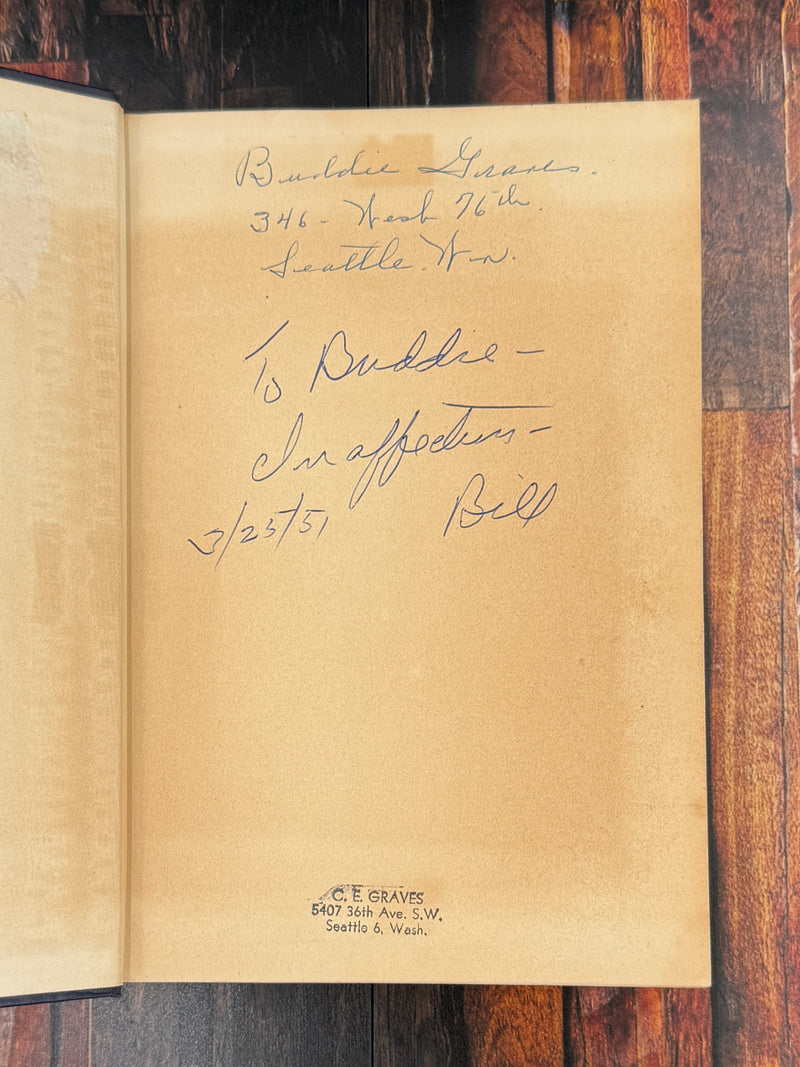 Buddie Graves.
346 - West 76th.
Seattle. Wn.
To Buddie -
In affection -
3/25/51
Bill
C. E. GRAVES
5407 36th Ave. S.W.
Seattle 6, Wash.